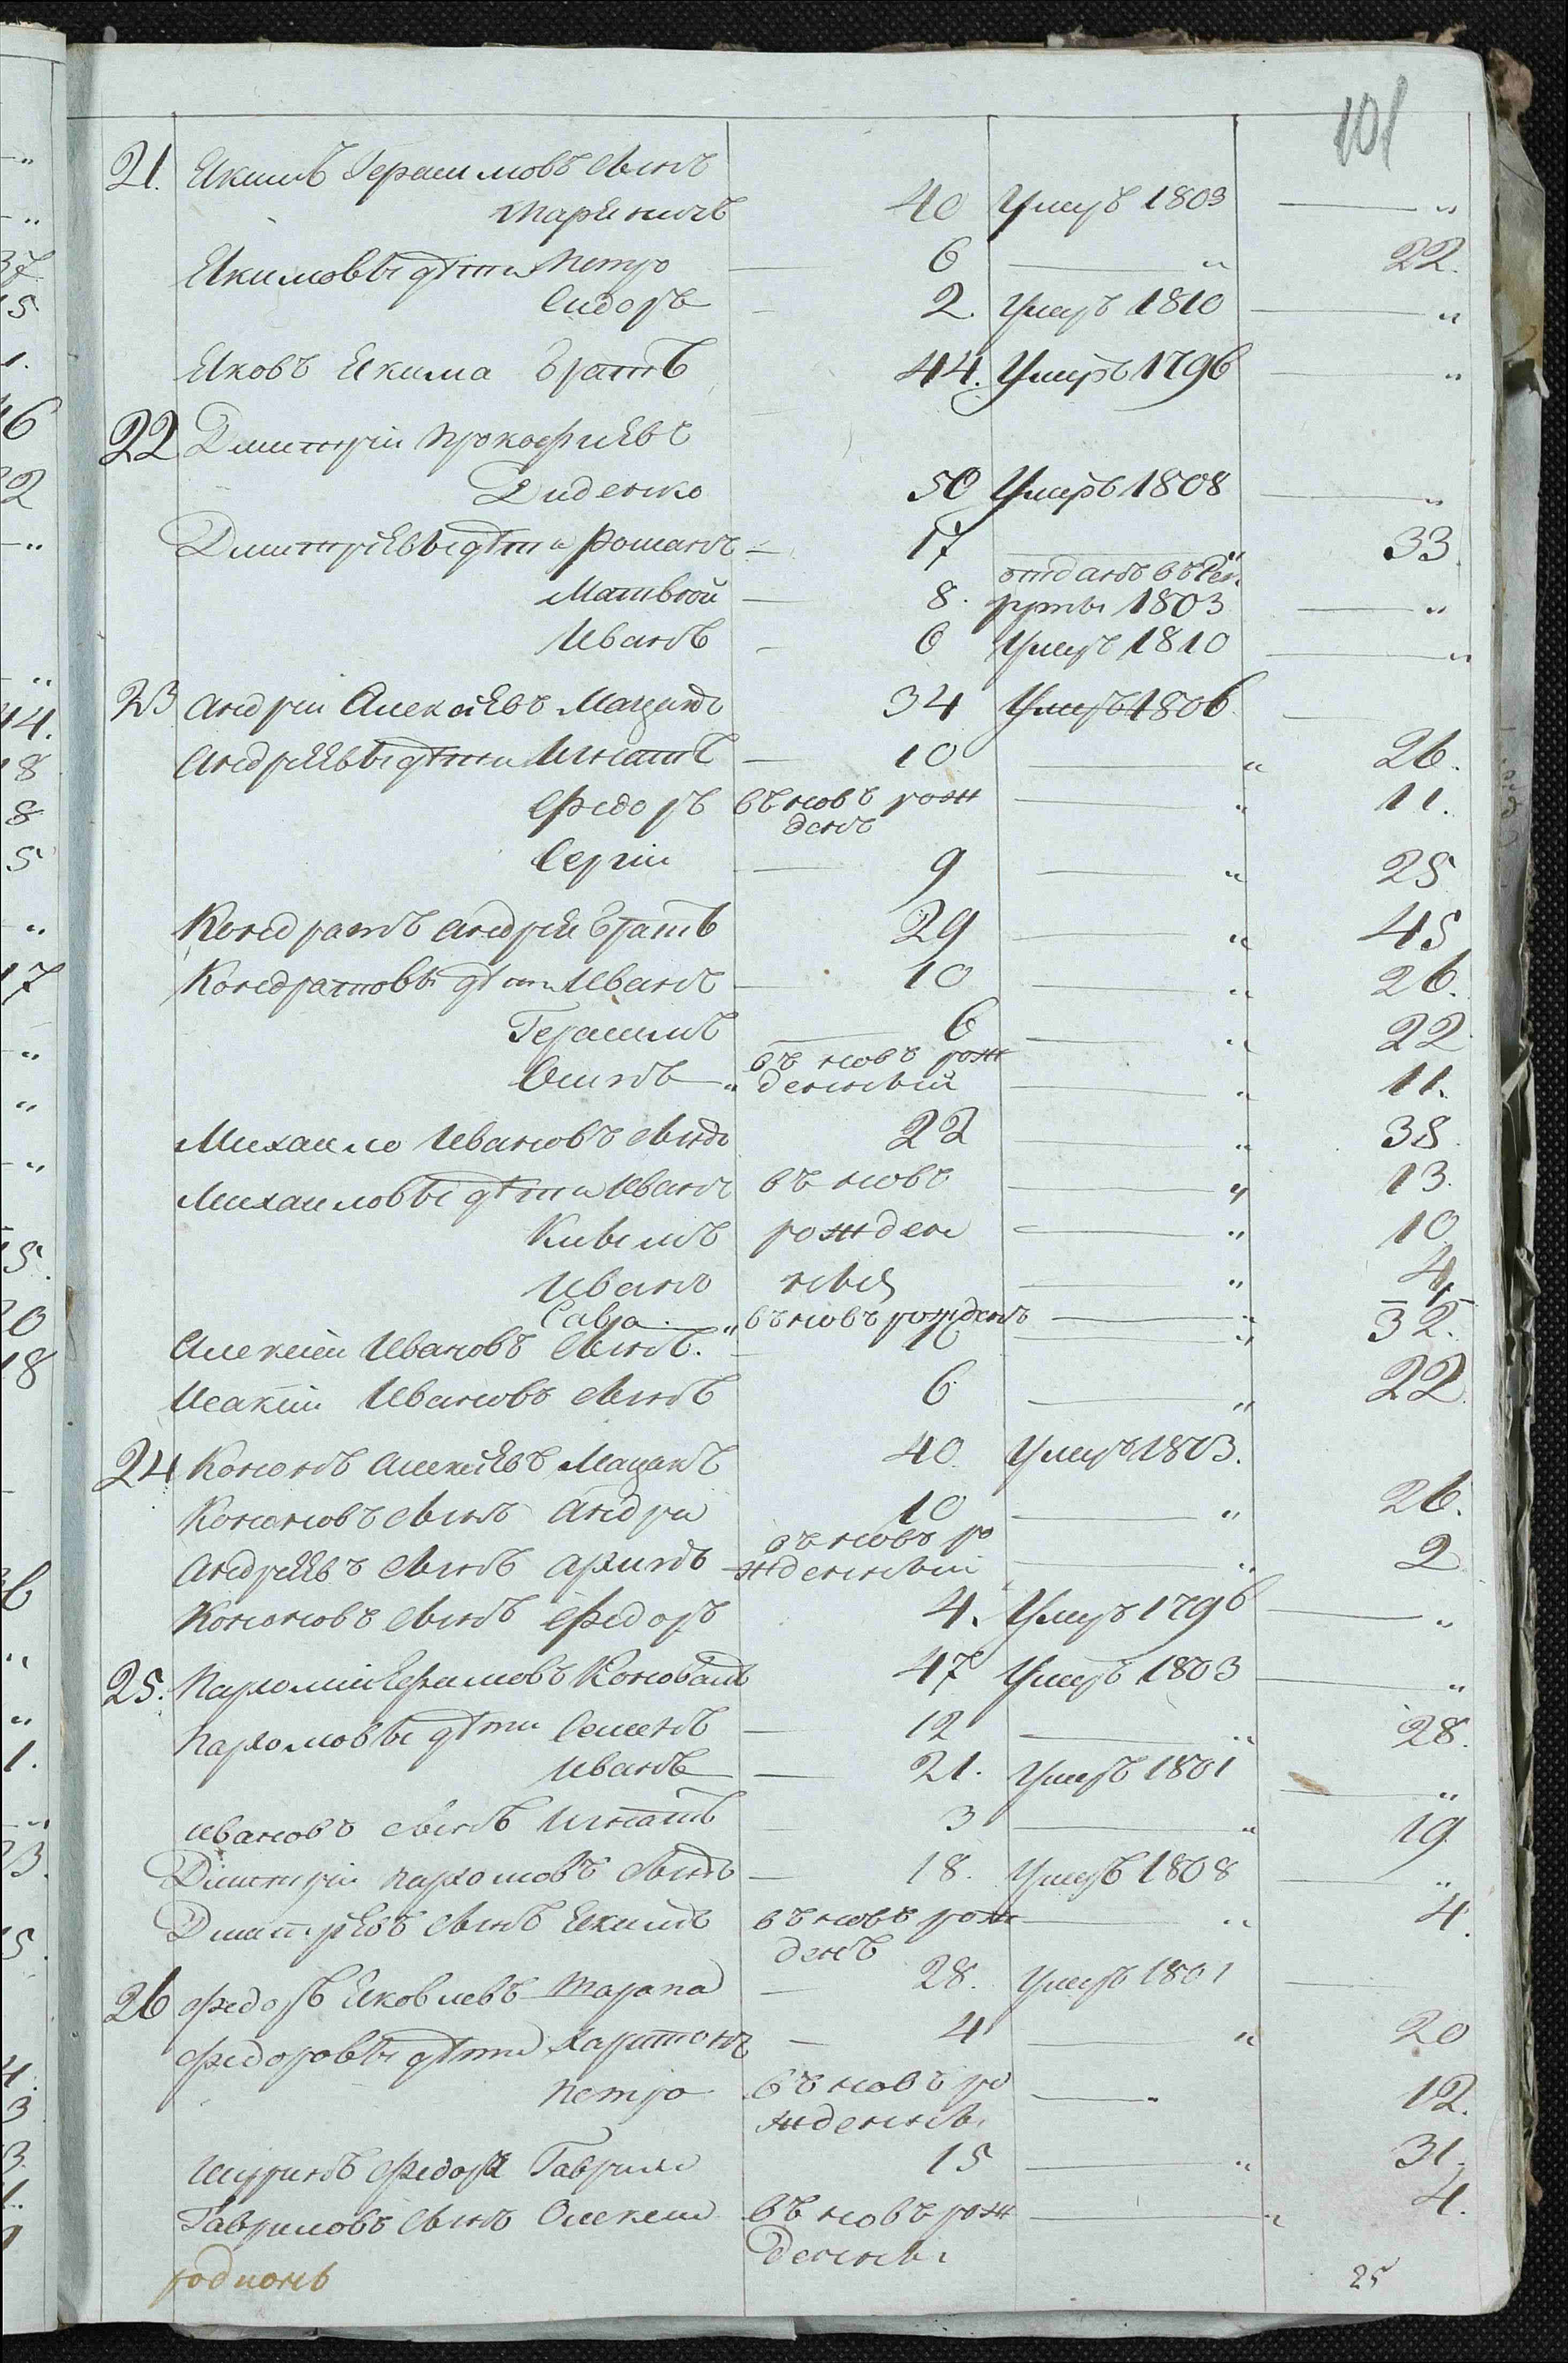 101
21. Якимъ Герасимовъ сынъ
Марѣничъ 40 Умеръ 1803 — "
Якимовы дѣти Петро — 6 — " 22.
Сидоръ — 2. Умеръ 1810 — "
Яковъ Якима братъ 44. Умеръ 1796 — "
22 Дмитрій Прокофиевъ
Диденко 50 Умеръ 1808 — "
Дмитріевы дѣти Романъ — 17 — " 33.
Матвѣй — 8. отданъ въ рек
руты 1803 — "
Иванъ — 6 Умеръ 1810 — "
23 Андрій Алексѣевъ Мацакъ 34 Умеръ 1806 —
Андрѣевы дѣти Игнатъ — 10 — " 26.
Федоръ въ новъ рож
денъ — " 11.
Сергій — 9 — " 25
Кондратъ Андрѣя братъ 29 — " 45
Кондратовы дѣти Иванъ — 10 — " 26.
Герасимъ — 6 — " 22
Осипъ — " въ новъ рож
денный — " 11.
Михаило Ивановъ сынъ 22 — " 38.
Михаиловы дѣти Иванъ въ новъ — " 13.
рожден — " 10
Иванъ ныя — " 4.
Сава — " въ новъ рожденъ — "
Алексѣй Ивановъ сынъ. — 16 — " 32.
Исакій Ивановъ сынъ 6 — " 22
24 Кононъ Алексѣевъ Мацакъ 40. Умеръ 1803.
Кононовъ сынъ Андри 10 — " 26.
Андрѣевъ сынъ Архипъ въ новъ ро
жденный — " 2
Кононовъ сынъ Федоръ 4. Умеръ 1796 — "
25. Пархомій Ефимовъ Коновалъ 47 Умеръ 1803 — "
Пархомовы дѣти Семенъ — 12 — " 28.
Иванъ — 21. Умеръ 1801 — "
Ивановъ сынъ Игнатъ 3 — " 19
Дмитрій Пархомовъ сынъ — 18. Умеръ 1808 — "
Дмитрѣевъ сынъ Якимъ въ новъ рож
денъ — " 4.
26 Федоръ Яковлевъ Тарапа — 28. Умеръ 1801 —
Федоровы дѣти Харитонъ — 4 — " 20
Петро въ новъ ро
жденны — " 12.
Шуринъ Федора Гаврило 15 — " 31.
Гавриловъ сынъ Олексей въ новъ рож
денны — " 4.
25